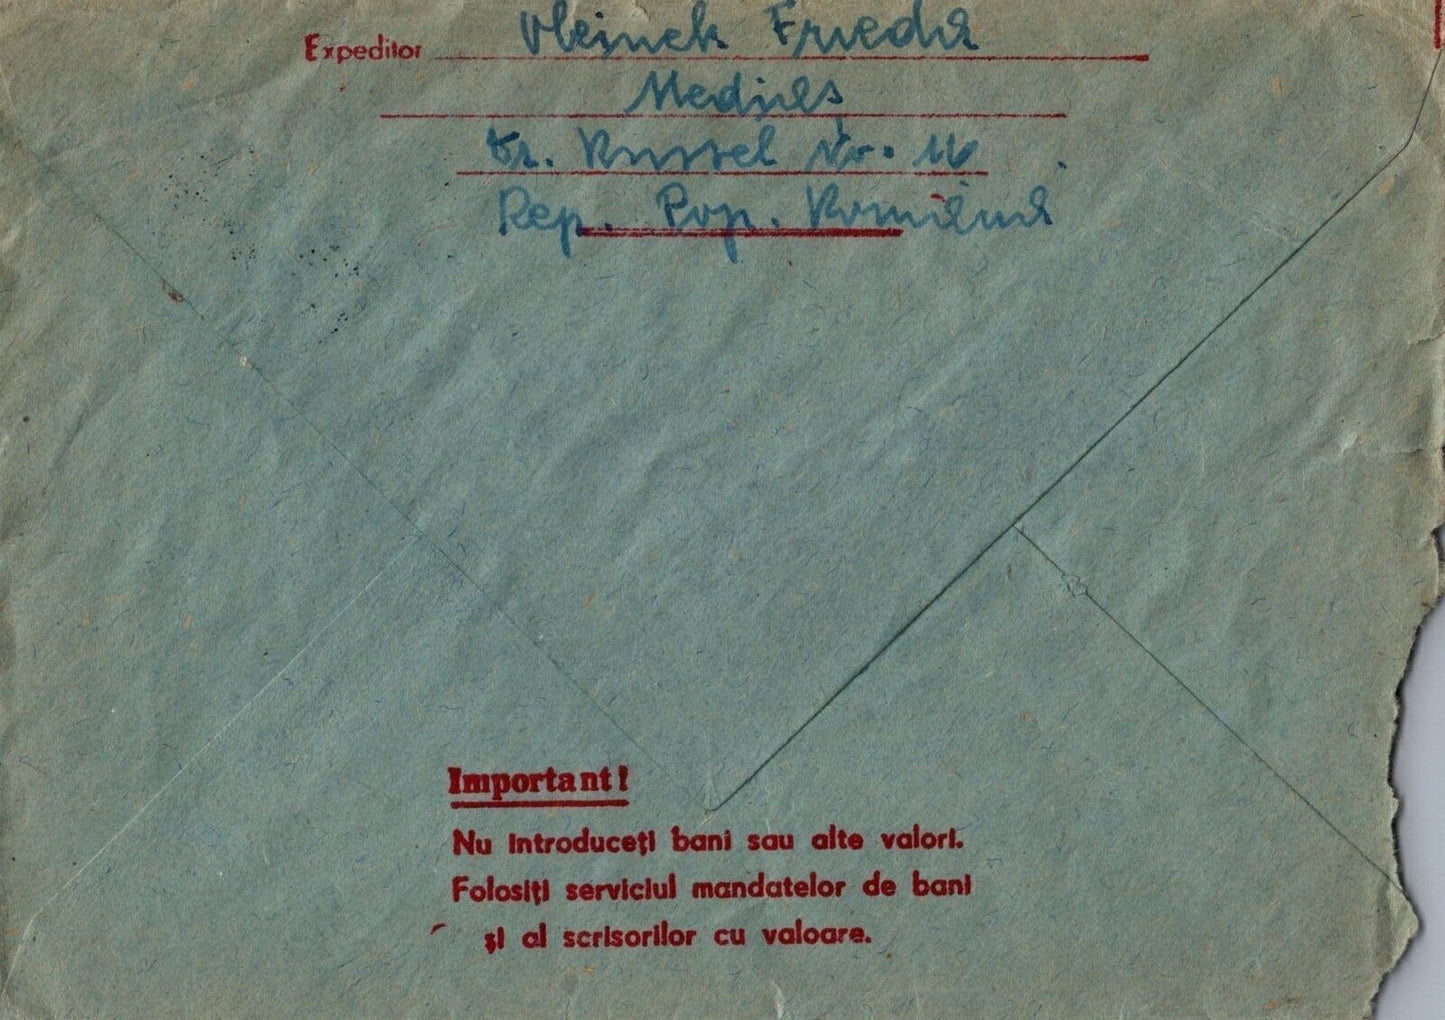 Expeditor Vlejnek Frieda
Mediaș
Str. Russel Nr. 16
Rep. Pop. Romînă
Important!
Nu introduceți bani sau alte valori.
Folosiți serviciul mandatelor de bani
și al scrisorilor cu valoare.